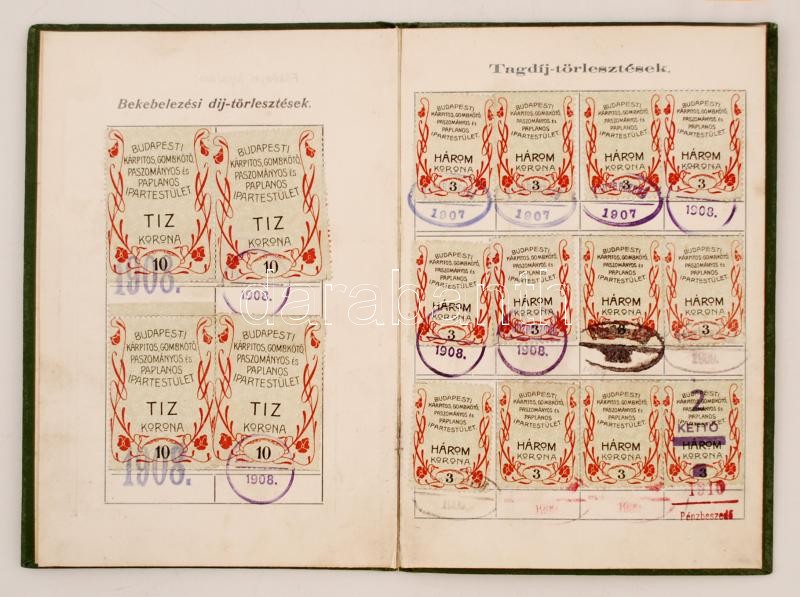 Bekebelezési díj-törlesztések.
BUDAPESTI
KÁRPITOS, GOMBKÖTŐ,
PASZOMÁNYOS és
PAPLANOS
IPARTESTÜLET
TIZ
KORONA
10
1908.
BUDAPESTI
KÁRPITOS, GOMBKÖTŐ,
PASZOMÁNYOS és
PAPLANOS
IPARTESTÜLET
TIZ
KORONA
10
1908.
BUDAPESTI
KÁRPITOS, GOMBKÖTŐ,
PASZOMÁNYOS és
PAPLANOS
IPARTESTÜLET
TIZ
KORONA
10
1908.
BUDAPESTI
KÁRPITOS, GOMBKÖTŐ,
PASZOMÁNYOS és
PAPLANOS
IPARTESTÜLET
TIZ
KORONA
10
1908.
Tagdíj-törlesztések.
BUDAPESTI
KÁRPITOS, GOMBKÖTŐ,
PASZOMÁNYOS és
PAPLANOS
IPARTESTÜLET
HÁROM
KORONA
3
1907
BUDAPESTI
KÁRPITOS, GOMBKÖTŐ,
PASZOMÁNYOS és
PAPLANOS
IPARTESTÜLET
HÁROM
KORONA
3
1907
BUDAPESTI
KÁRPITOS, GOMBKÖTŐ,
PASZOMÁNYOS és
PAPLANOS
IPARTESTÜLET
HÁROM
KORONA
3
1907
BUDAPESTI
KÁRPITOS, GOMBKÖTŐ,
PASZOMÁNYOS és
PAPLANOS
IPARTESTÜLET
HÁROM
KORONA
3
1908.
BUDAPESTI
KÁRPITOS, GOMBKÖTŐ,
PASZOMÁNYOS és
PAPLANOS
IPARTESTÜLET
HÁROM
KORONA
3
1908.
BUDAPESTI
KÁRPITOS, GOMBKÖTŐ,
PASZOMÁNYOS és
PAPLANOS
IPARTESTÜLET
HÁROM
KORONA
3
1908.
BUDAPESTI
KÁRPITOS, GOMBKÖTŐ,
PASZOMÁNYOS és
PAPLANOS
IPARTESTÜLET
HÁROM
KORONA
3
BUDAPESTI
KÁRPITOS, GOMBKÖTŐ,
PASZOMÁNYOS és
PAPLANOS
IPARTESTÜLET
HÁROM
KORONA
3
BUDAPESTI
KÁRPITOS, GOMBKÖTŐ,
PASZOMÁNYOS és
PAPLANOS
IPARTESTÜLET
HÁROM
KORONA
3
BUDAPESTI
KÁRPITOS, GOMBKÖTŐ,
PASZOMÁNYOS és
PAPLANOS
IPARTESTÜLET
HÁROM
KORONA
3
BUDAPESTI
KÁRPITOS, GOMBKÖTŐ,
PASZOMÁNYOS és
PAPLANOS
IPARTESTÜLET
HÁROM
KORONA
3
BUDAPESTI
KÁRPITOS, GOMBKÖTŐ,
PASZOMÁNYOS és
PAPLANOS
IPARTESTÜLET
2
KETTŐ
HÁROM
KORONA
1910
Pénzbeszedő
darabanth